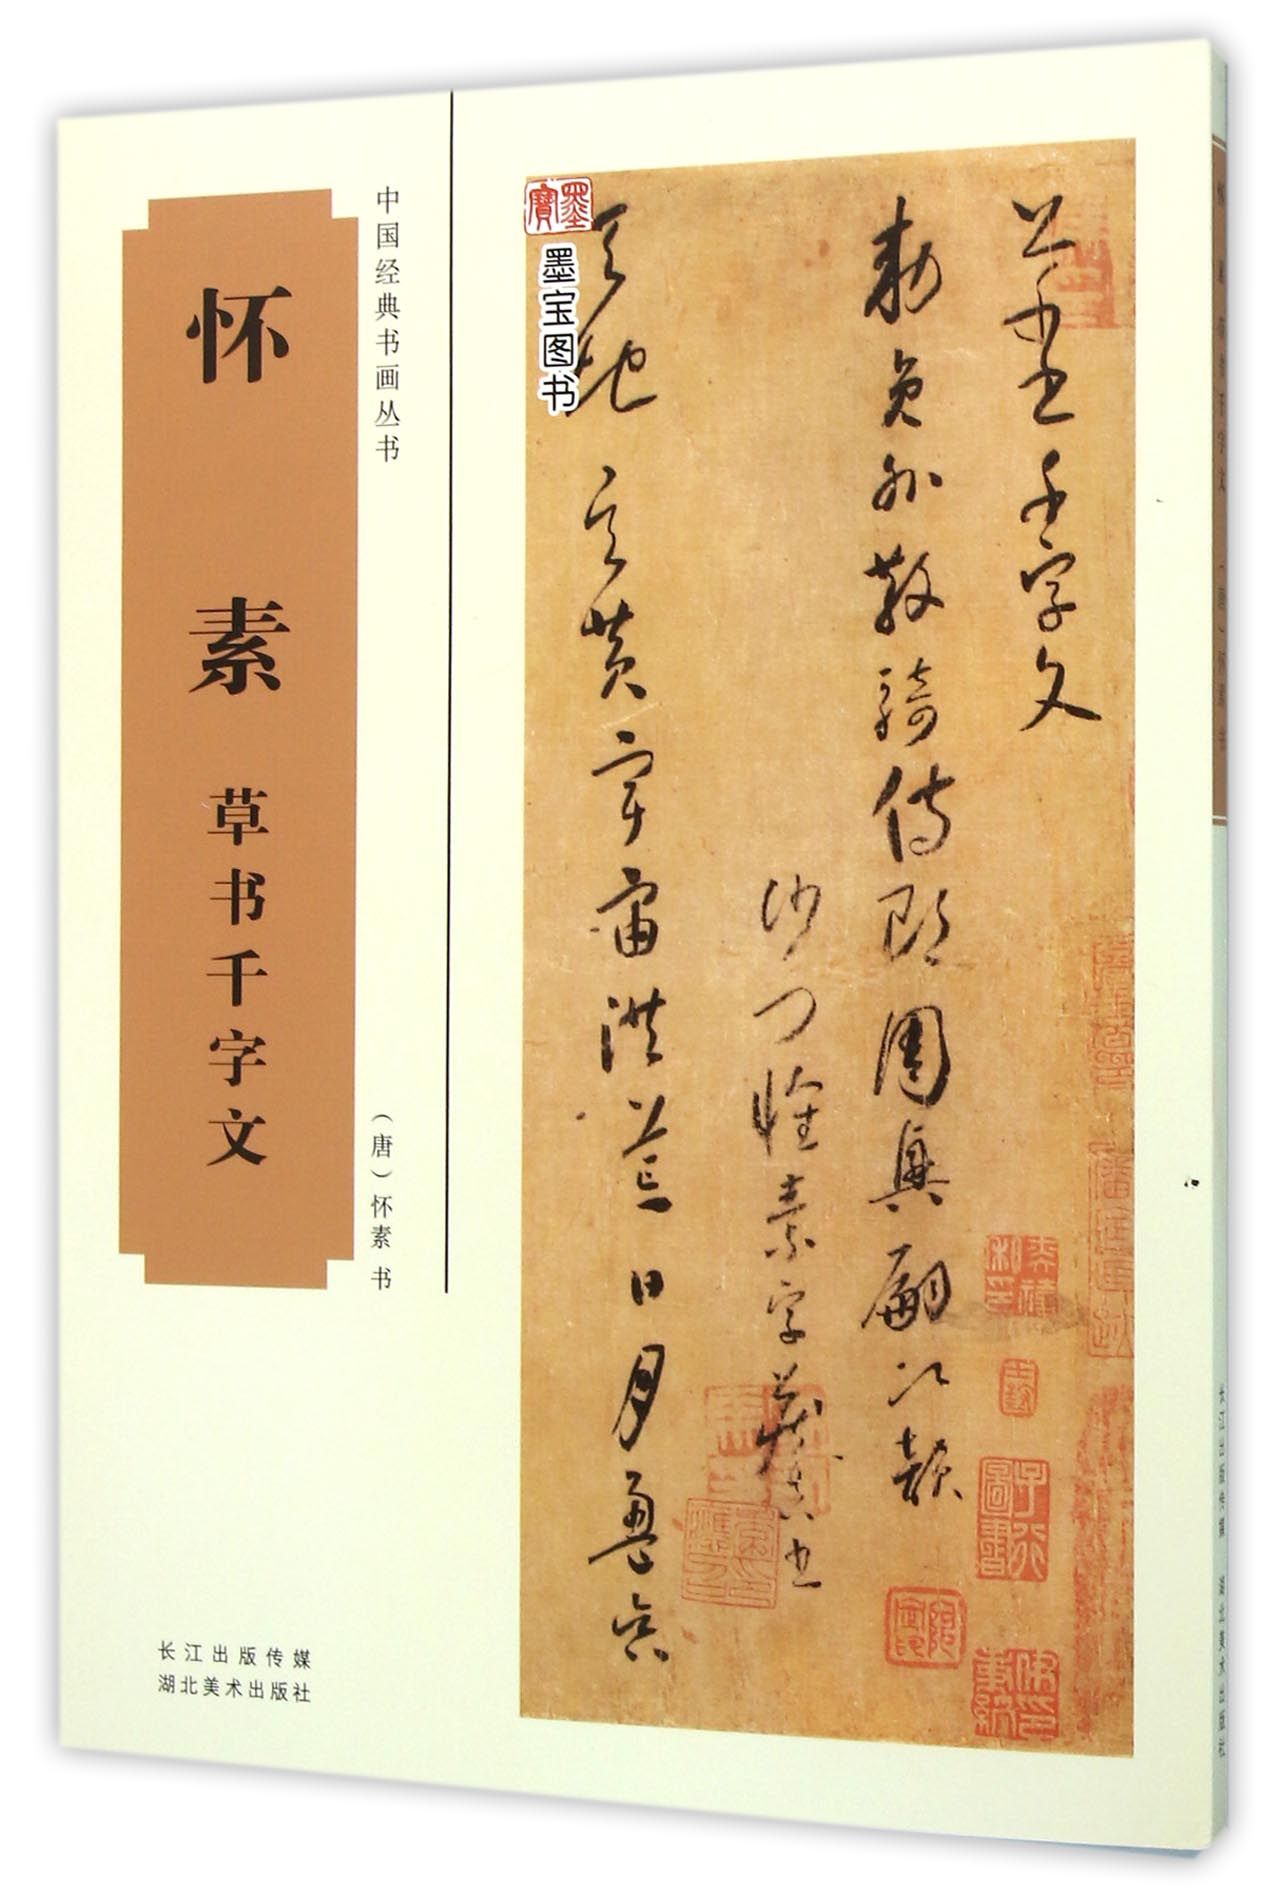 中国经典书画丛书
怀素
草书千字文
（唐）怀素 书
长江出版传媒
湖北美术出版社
墨宝图书
草书千字文
敕员外散骑侍郎周兴嗣次韵
沙门怀素字藏真书
天地玄黄宇宙洪荒日月盈昃
长江出版传媒 湖北美术出版社